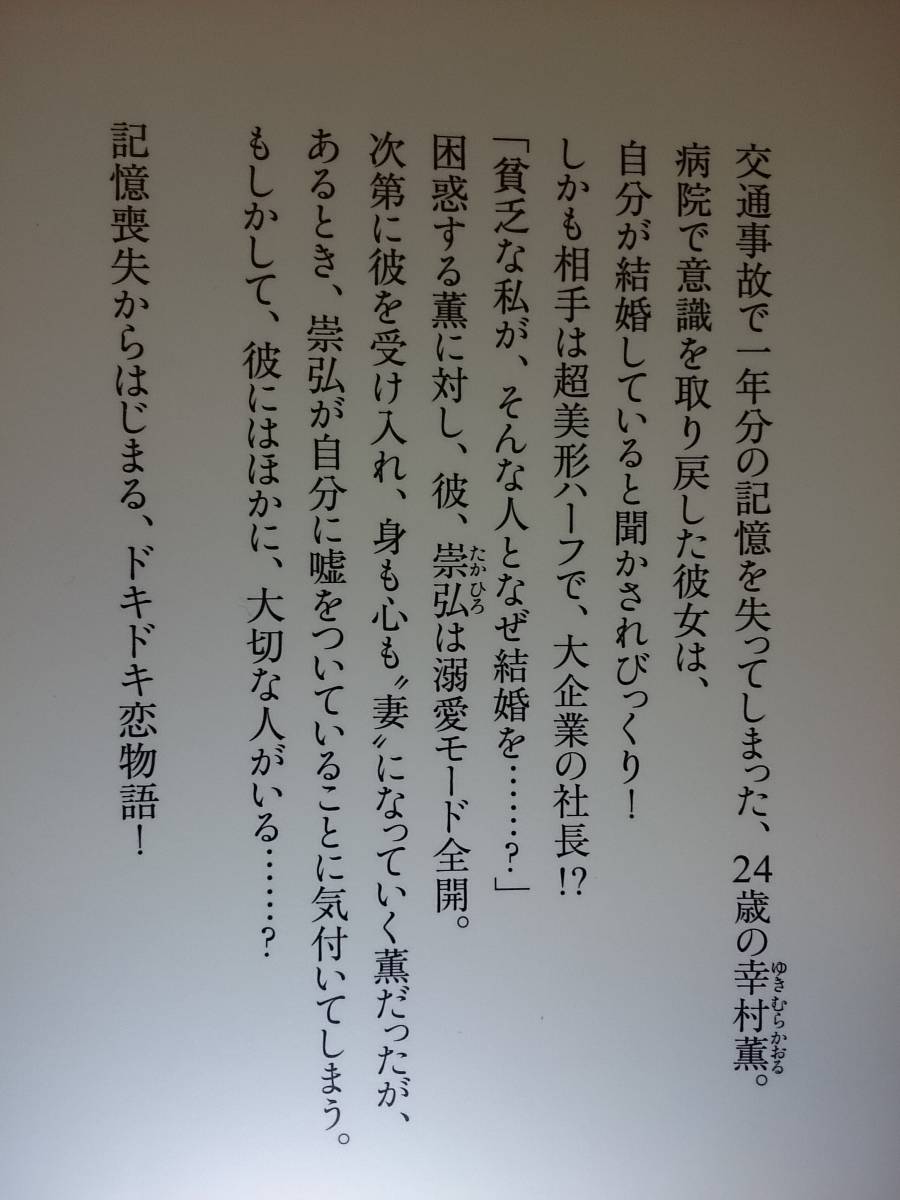 交通事故で一年分の記憶を失ってしまった、24歳の幸村薫。
病院で意識を取り戻した彼女は、
自分が結婚していると聞かされびっくり！
しかも相手は超美形ハーフで、大企業の社長!?
「貧乏な私が、そんな人となぜ結婚を……？」
困惑する薫に対し、彼、崇弘は溺愛モード全開。
次第に彼を受け入れ、身も心も〝妻〟になっていく薫だったが、
あるとき、崇弘が自分に嘘をついていることに気付いてしまう。
もしかして、彼にはほかに、大切な人がいる……？
記憶喪失からはじまる、ドキドキ恋物語！
ゆきむらかおる
たかひろ